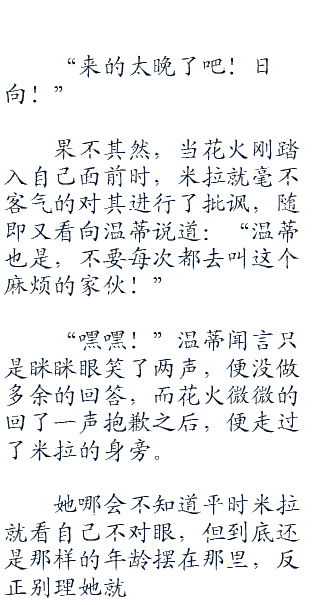 “来的太晚了吧！日
向！”
果不其然，当花火刚踏
入自己面前时，米拉就毫不
客气的对其进行了批讽，随
即又看向温蒂说道：“温蒂
也是，不要每次都去叫这个
麻烦的家伙！”
“嘿嘿！”温蒂闻言只
是眯眯眼笑了两声，便没做
多余的回答，而花火微微的
回了一声抱歉之后，便走过
了米拉的身旁。
她哪会不知道平时米拉
就看自己不对眼，但到底还
是那样的年龄摆在那里，反
正别理她就